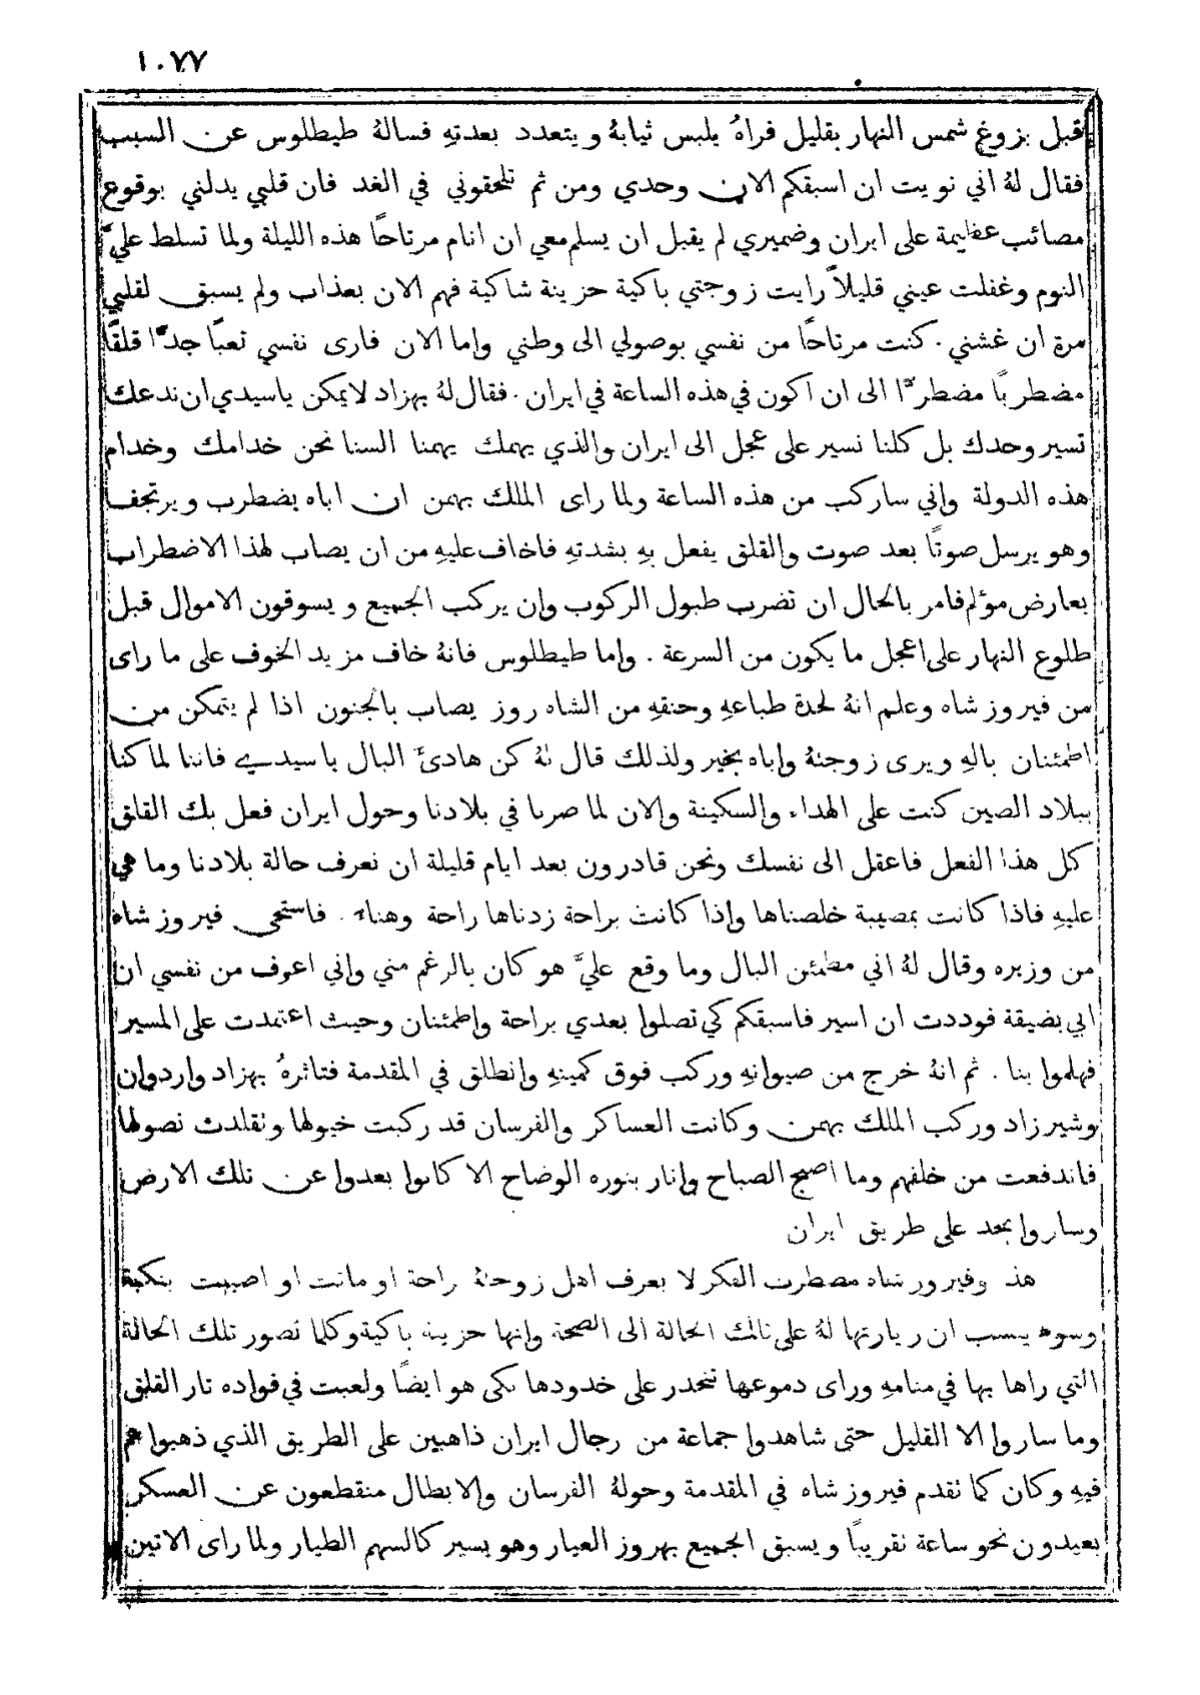 ١٠٧٧
قبل بزوغ شمس النهار بقليل فراهُ يلبس ثيابهُ ويتعدد بعدتهِ فسالهُ طيطلوس عن السبب
فقال لهُ اني نويت ان اسبقكم الان وحدي ومن ثم تلحقوني في الغد فان قلبي يدلني بوقوع
مصائب عظيمة على ايران وضميري لم يقبل ان يسلم معي ان انام مرتاحًا هذه الليلة ولما تسلط عليَّ
النوم وغفلت عيني قليلاً رايت زوجتي باكية حزينة شاكية فهم الان بعذاب ولم يسبق لقلبي
مرة ان غشني. كنت مرتاحًا من نفسي بوصولي الى وطني واما الان فارى نفسي تعبًا جدًّا قلقًا
مضطربًا مضطرًّا الى ان اكون في هذه الساعة في ايران. فقال لهُ بهزاد لا يمكن ياسيدي ان ندعك
تسير وحدك بل كلنا نسير على عجل الى ايران والذي يهمك يهمنا السنا نحن خدامك وخدام
هذه الدولة واني ساركب من هذه الساعة ولما راى الملك بهمن ان اباه يضطرب ويرتجف
وهو يرسل صوتًا بعد صوت والقلق يفعل بهِ بشدتهِ فاخاف عليهِ من ان يصاب لهذا الاضطراب
بعارض موَّلم فامر بالحال ان تضرب طبول الركوب وان يركب الجميع ويسوقون الاموال قبل
طلوع النهار على اعجل ما يكون من السرعة. واما طيطلوس فانهُ خاف مزيد الخوف على ما راى
من فيروز شاه وعلم انهُ لحدة طباعهِ وحنقهِ من الشاه روز يصاب بالجنون اذا لم يتمكن من
اطمئنان بالهِ ويرى زوجتهُ واباه بخير ولذلك قال لهُ كن هادئَ البال ياسيدي فاننا لما كنا
ببلاد الصين كنت على الهداء والسكينة والان لما صرنا في بلادنا وحول ايران فعل بك القلق
كل هذا الفعل فاعقل الى نفسك ونحن قادرون بعد ايام قليلة ان نعرف حالة بلادنا وما هي
عليهِ فاذا كانت بمصيبة خلصناها واذا كانت براحة زدناها راحة وهناء. فاستحى فيروز شاه
من وزيره وقال لهُ اني مطمئن البال وما وقع عليَّ هو كان بالرغم مني واني اعرف من نفسي ان
ابي بضيقة فوددت ان اسير فاسبقكم كي تصلوا بعدي براحة واطمئنان وحيث اعتمدت على المسير
فهلموا بنا. ثم انهُ خرج من صيوانهِ وركب فوق كمينهِ وانطلق في المقدمة فتاثرهُ بهزاد واردوان
وشيرزاد وركب الملك بهمن وكانت العساكر والفرسان قد ركبت خيولها وتقلدت نصولها
فاندفعت من خلفهم وما اصبح الصباح وانار بنوره الوضاح الا كانوا بعدوا عن تلك الارض
وساروا بجد على طريق ايران
هذ وفيروز شاه مضطرب الفكر لا يعرف اهل زوجتهُ راحة او ماتت او اصيبت بنكبة
وسوء بسبب ان زيارتها لهُ على تلك الحالة الى الصحة وانها حزينة باكية وكلما تصور تلك الحالة
التي راها بها في منامهِ وراى دموعها تنحدر على خدودها بكى هو ايضًا ولعبت في فواده نار القلق
وما ساروا الا القليل حتى شاهدوا جماعة من رجال ايران ذاهبين على الطريق الذي ذهبوا هم
فيهِ وكان كما تقدم فيروز شاه في المقدمة وحولهُ الفرسان والابطال منقطعون عن العسكر
بعيدون نحو ساعة تقريبًا ويسبق الجميع بهروز العيار وهو يسير كالسهم الطيار ولما راى الاتين